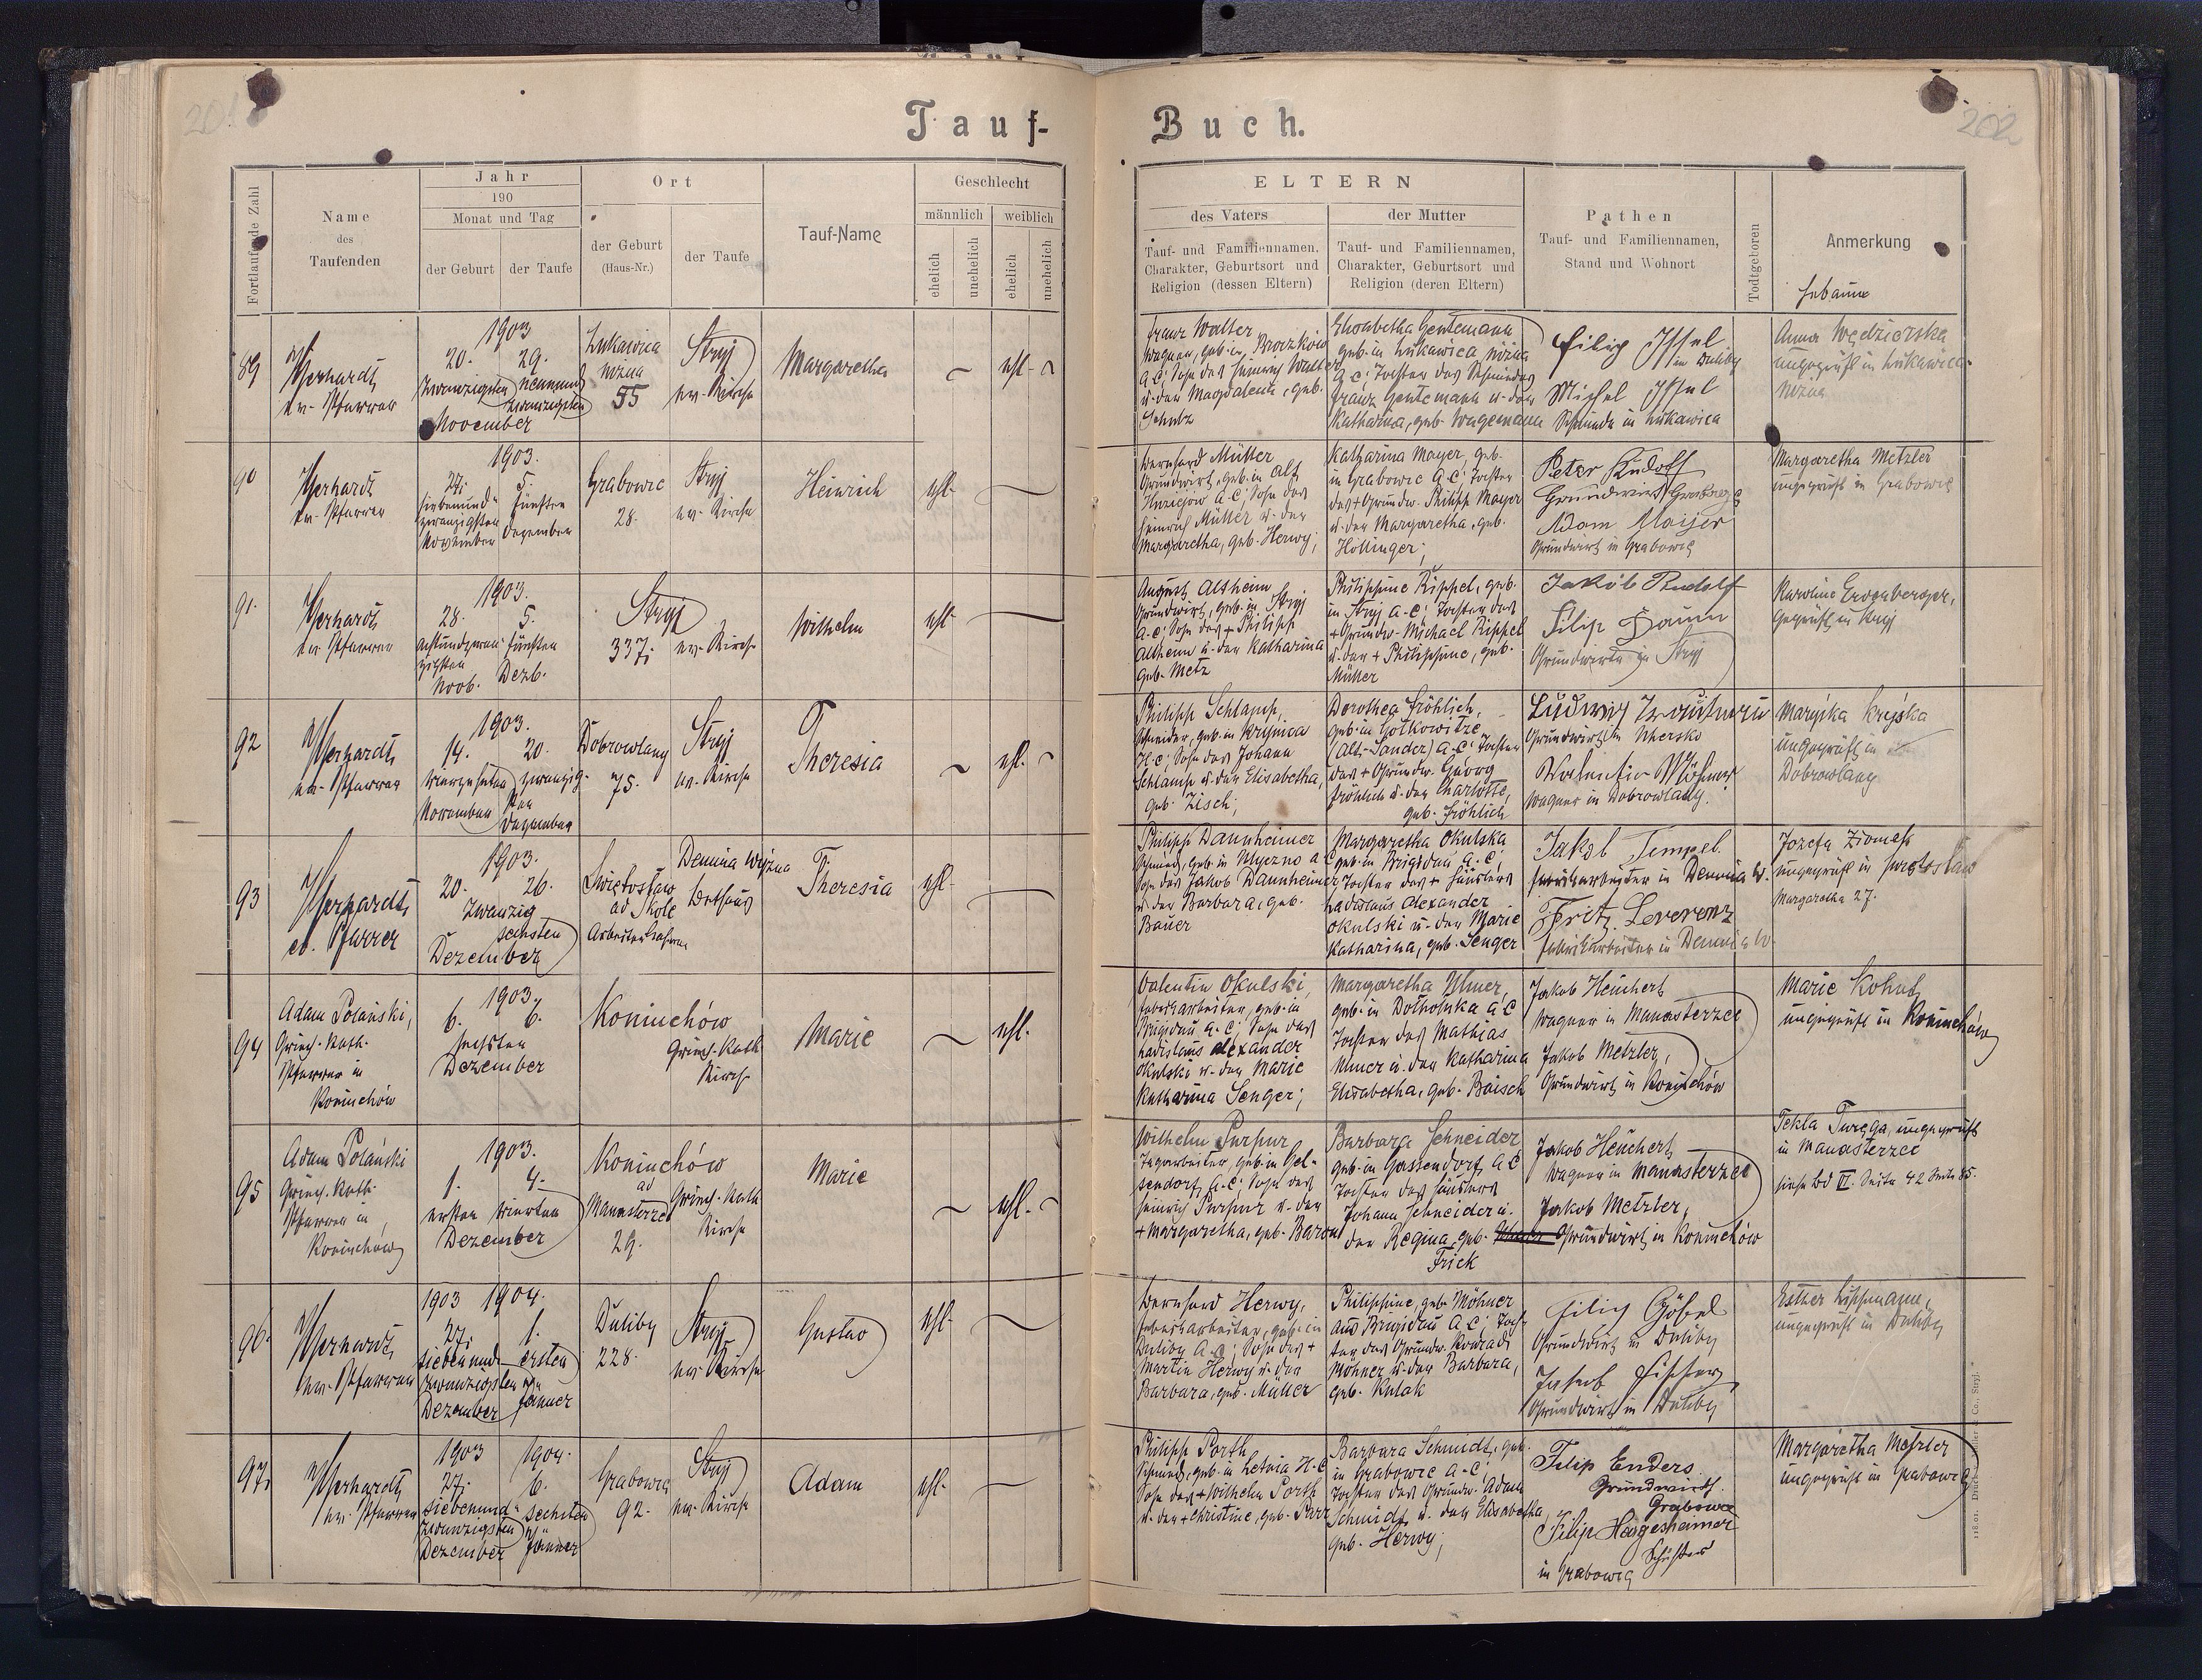 201
202
Tauf-Buch.
Fortlaufende Zahl
Name
des
Taufenden
Jahr
190
Monat und Tag
der Geburt
der Taufe
Ort
der Geburt
(Haus-Nr.)
der Taufe
Tauf-Name
Geschlecht
männlich
weiblich
ehelich
unehelich
ehelich
unehelich
ELTERN
des Vaters
Tauf- und Familiennamen,
Charakter, Geburtsort und
Religion (dessen Eltern)
der Mutter
Tauf- und Familiennamen,
Charakter, Geburtsort und
Religion (deren Eltern)
Pathen
Tauf- und Familiennamen,
Stand und Wohnort
Todtgeboren
Anmerkung
Hebamme
89
ev. Pfarrer
1903
20. 29.
Zwanzigsten neunund
zwanzigsten
November
Łukawica
nizna
55
Stryj
ev. Kirche
Margaretha
ehl.
Franz Walter
Wagner, geb. in Broczkow
A.C.; Sohn des Heinrich Walter
u. der Magdalena, geb.
Schulz
Elisabetha Gentemann
geb. in Lukawica nizna
A.C.; Tochter des Schmiedes
Franz Gentemann u. der
Katharina, geb. Wagemann
Filip Issel
in Duliby
Michel Issel
Schmied in Lukawica
Anna Wędzierska
ungeprüft in Lukawica
nizna
90
ev. Pfarrer
1903.
27. 5.
siebenund- fünften
zwanzigsten Dezember
November
Grabowce
28.
Stryj
ev. Kirche
Heinrich
ehl.
Bernhard Müller
Grundwirt, geb. in Alt
A.C.; Sohn des
Heinrich Müller u. der
Margaretha, geb. Herwy;
Katharina Mayer, geb.
in Grabowce A.C.; Tochter
des + Grundw. Philipp Mayer
u. der Margaretha, geb.
Höllinger;
Peter Rudolf
Grundwirt
Adam Maijer
Grundwirt in Grabowce
Margaretha Metzler
ungeprüft in Grabowce
91.
ev. Pfarrer
1903.
28. 5.
achtundzwan- fünften
zigsten Dezb.
Novb.
Stryj
337.
ev. Kirche
Wilhelm
ehl.
August Altheim
Grundwirt, geb. in Stryj
A.C.; Sohn des + Philipp
Altheim u. der Katharina
geb. Metz
Philippine Rippel, geb.
in Stryj A.C.; Tochter des
+ Grundw. Michael Rippel
u. der + Philippine, geb.
Müller
Jakob Rudolf
Filip Daum
Grundwirte in Stryj
Karoline
geprüft in Stryj
92
ev. Pfarrer
1903.
14. 20.
vierzehnten zwanzig-
November sten
Dezember
Dobrowlany
75.
Stryj
ev. Kirche
Theresia
ehl.
Philipp Schlamp,
Schneider, geb. in Krynica
H.C.; Sohn des Johann
Schlamp u. der Elisabetha,
geb. Zisch;
Dorothea Fröhlich,
geb. in Golkowitze
(Alt-Sandez) A.C.; Tochter
des + Grundw. Georg
Fröhlich u. der Charlotte,
geb. Fröhlich
Ludwig
Grundwirt in Uhersko
Walentin Möhner
Wagner in Dobrowlany.
Maryśka
ungeprüft in
Dobrowlany
93
ev. Pfarrer
1903.
20. 26.
Zwanzig
sechsten
Dezember
Świętosław
ad Skole
Demnia Wyżna
Bethaus
Theresia
ehl.
Philipp Dannheimer
Schmied, geb. in Ulyczno A.C.
Sohn des Jakob Dannheimer
u. der Barbara, geb.
Bauer
Margaretha Okulska
geb. in Brigidau A.C.;
Tochter des + Häuslers
Ladislaus Alexander
Okulski u. der Marie
Katharina, geb. Senger
Jakob Tempel
Fabriksarbeiter in Demnia W.
Fritz Leverenz
Fabriksarbeiter in Demnia W.
Josefa
ungeprüft in
Margaretha 27.
94
Adam Polański,
Griech. Kath.
Pfarrer in
Koniuchów
1903.
6. 6.
sechsten
Dezember
Koniuchów
Griech. Kath
Kirche
Marie
ehl.
Valentin Okulski,
Fabriksarbeiter, geb. in
Brigidau A.C.; Sohn des
Ladislaus Alexander
Okulski u. der Marie
Katharina Senger;
Margaretha Ulmer,
geb. in Dolholuka A.C
Tochter des Mathias
Ulmer u. der Katharina
Elisabetha, geb. Baisch
Jakob Heuchert
Wagner in Manasterzec
Jakob Metzler,
Grundwirt in Koniuchów
Marie Kohut
ungeprüft in Koniuchów
95
Adam Polański
Griech. Kath.
Pfarrer in
Koniuchów
1903.
1. 4.
ersten vierten
Dezember
Koniuchów
ad
Manasterzec
29.
Griech. Kath
Kirche
Marie
ehl.
Wilhelm Purpur
Tagarbeiter, geb. in Gel-
sendorf, A.C.; Sohn des
Heinrich Purpur u. der
+ Margaretha, geb. Baron
Barbara Schneider
geb. in Gassendorf, A.C
Tochter des Häuslers
Johann Schneider u.
der Regina, geb.
Frick
Jakob Heuchert
Wagner in Manasterzec
Jakob Metzler,
Grundwirt in Koniuchów
Tekla ungeprüft
in Manasterzec
siehe Bd VI. Seite 42
96.
ev. Pfarrer
1903 1904.
27. 1.
siebenund- ersten
zwanzigsten Jänner
Dezember
Duliby
228.
Stryj
ev. Kirche
Gustav
ehl.
Bernhard Herwy,
Fabriksarbeiter, geb. in
Duliby A.C.; Sohn des +
Martin Herwy u. der
Barbara, geb. Müller
Philippine, geb. Möhner
aus Brigidau A.C.; Toch-
ter des Grundw. Konrad
Möhner u. der Barbara,
geb. Kulak
Filip Göbel
Grundwirt in Duliby
Jakob Fischer
Grundwirt in Duliby
Esther Lippmann,
ungeprüft in Duliby
97.
ev. Pfarrer
1903 1904.
27. 6.
siebenund- sechsten
zwanzigsten Jänner
Dezember
Grabowce
92.
Stryj
ev. Kirche
Adam
ehl.
Philipp Porth
Schmied, geb. in Letnia H.C
Sohn des + Wilhelm Porth
u. der + Christine, geb.
Barbara Schmidt, geb.
in Grabowce A.C.;
Tochter des Grundw. Adam
Schmidt u. der Elisabetha,
geb. Herwy;
Filip Enders
Grundwirth
Grabowce
Filip Hargesheimer
Schuster
in Grabowce
Margaretha Metzler
ungeprüft in Grabowce